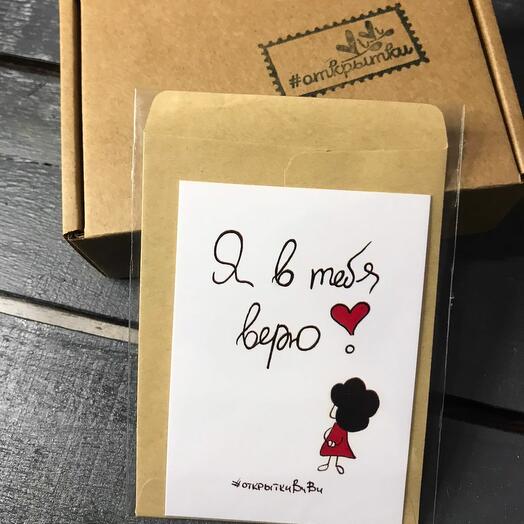 #открытки
Я в тебя
верю
#открыткиВиВи